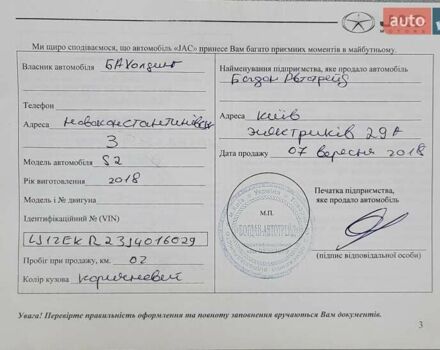 auto
Ми щиро сподіваємося, що автомобіль «JAC» принесе Вам багато приємних моментів в майбутньому.
Власник автомобіля БА Холдинг
Телефон
Адреса Новоконстантинівська
3
Модель автомобіля S2
Рік виготовлення 2018
Модель і № двигуна
Ідентифікаційний № (VIN)
LJ12EKR23J4016029
Пробіг при продажу, км. 02
Колір кузова коричневый
Найменування підприємства, яке продало автомобіль
Богдан Автотрейд
Адреса Київ
Электриків 29А
Дата продажу 07 вересня 2018
М.П.
БОГДАН-АВТОТРЕЙД
Печатка підприємства,
яке продало автомобіль
(підпис відповідальної особи)
Увага! Перевірте правильність оформлення та повноту заповнення вручаються Вам документів.
3